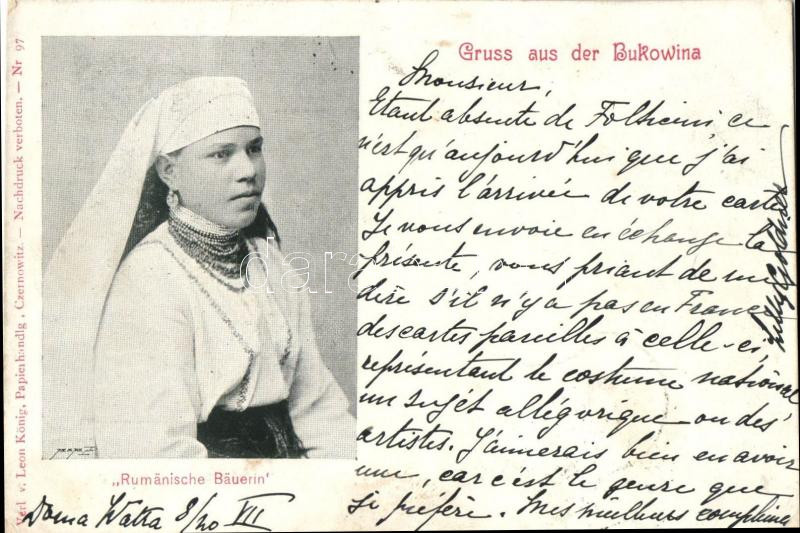 Gruss aus der Bukowina
Monsieur,
Etant absente de Folticeni ce
n'est qu'aujourd'hui que j'ai
appris l'arrivée de votre carte
Je vous envoie en échange la
présente, vous priant de me
dire s'il n'y a pas en France
des cartes pareilles à celle-ci,
représentant le costume national
un sujét allégorique ou des
artistes. J'aimerais bien en avoir
une, car c'est le genre que
je préfère. Mes meilleurs complime
Lilly
„Rumänische Bäuerin'
Dorna Watra 8/20 VII
Verl v. Leon König, Papierhandlg, Czernowitz. — Nachdruck verboten. — Nr 97
darabanth